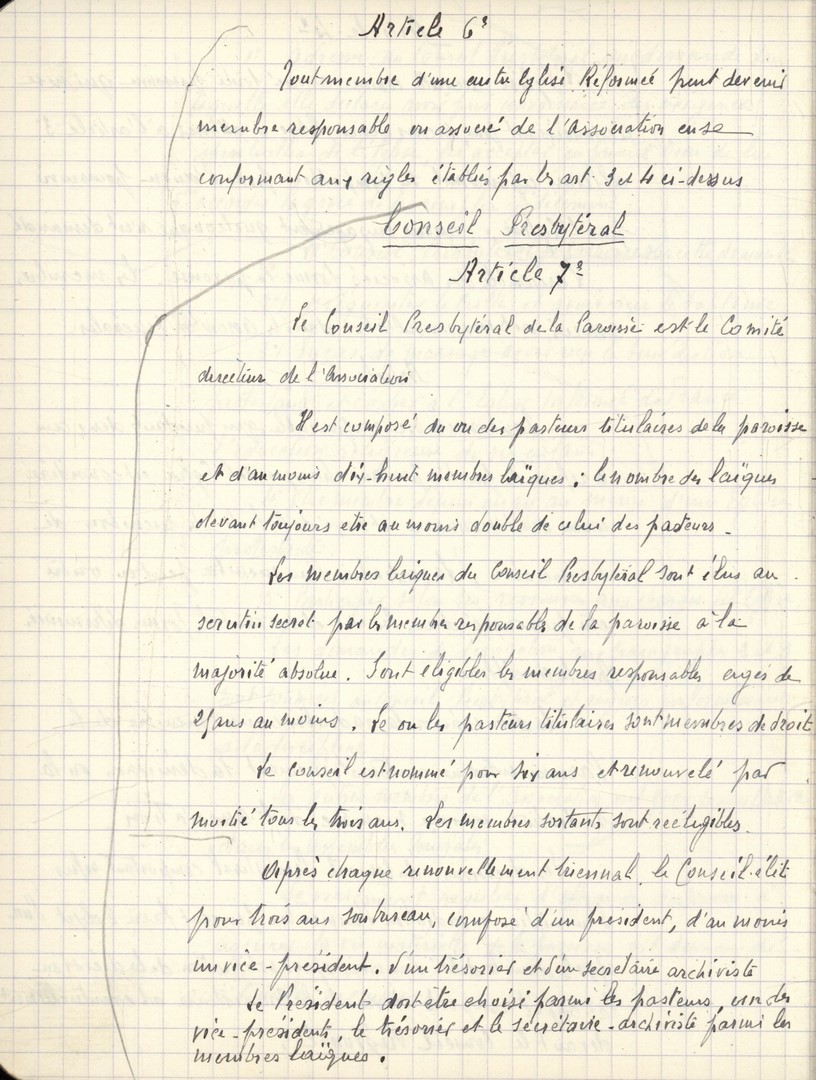 Article 6e
Tout membre d'une autre Eglise Réformée peut devenir
membre responsable ou associé de l'Association en se
conformant aux règles établies par les art. 3 et 4 ci-dessus
Conseil Presbytéral
Article 7e
Le Conseil Presbytéral de la Paroisse est le Comité
directeur de l'Association
Il est composé du ou des pasteurs titulaires de la paroisse
et d'au moins dix-huit membres laïques ; le nombre des laïques
devant toujours etre au moins double de celui des pasteurs.
Les membres laiques du Conseil Presbytéral sont élus au
scrutin secret par les membres responsables de la paroisse à la
majorité absolue. Sont éligibles les membres responsables agés de
25 ans au moins. Le ou les pasteurs titulaires sont membres de droit
Le Conseil est nommé pour six ans et renouvelé par
moitié tous les trois ans. Les membres sortants sont rééligibles.
Après chaque renouvellement triennal, le Conseil élit
pour trois ans son bureau, composé d'un président, d'au moins
un vice-président, d'un trésorier et d'un secrétaire archiviste
Le Président doit être choisi parmi les pasteurs, un des
vice-présidents, le trésorier et le secrétaire-archiviste parmi les
membres laïques.